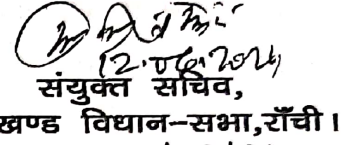 12.06.2024
संयुक्त सचिव,
खण्ड विधान-सभा,राँची।